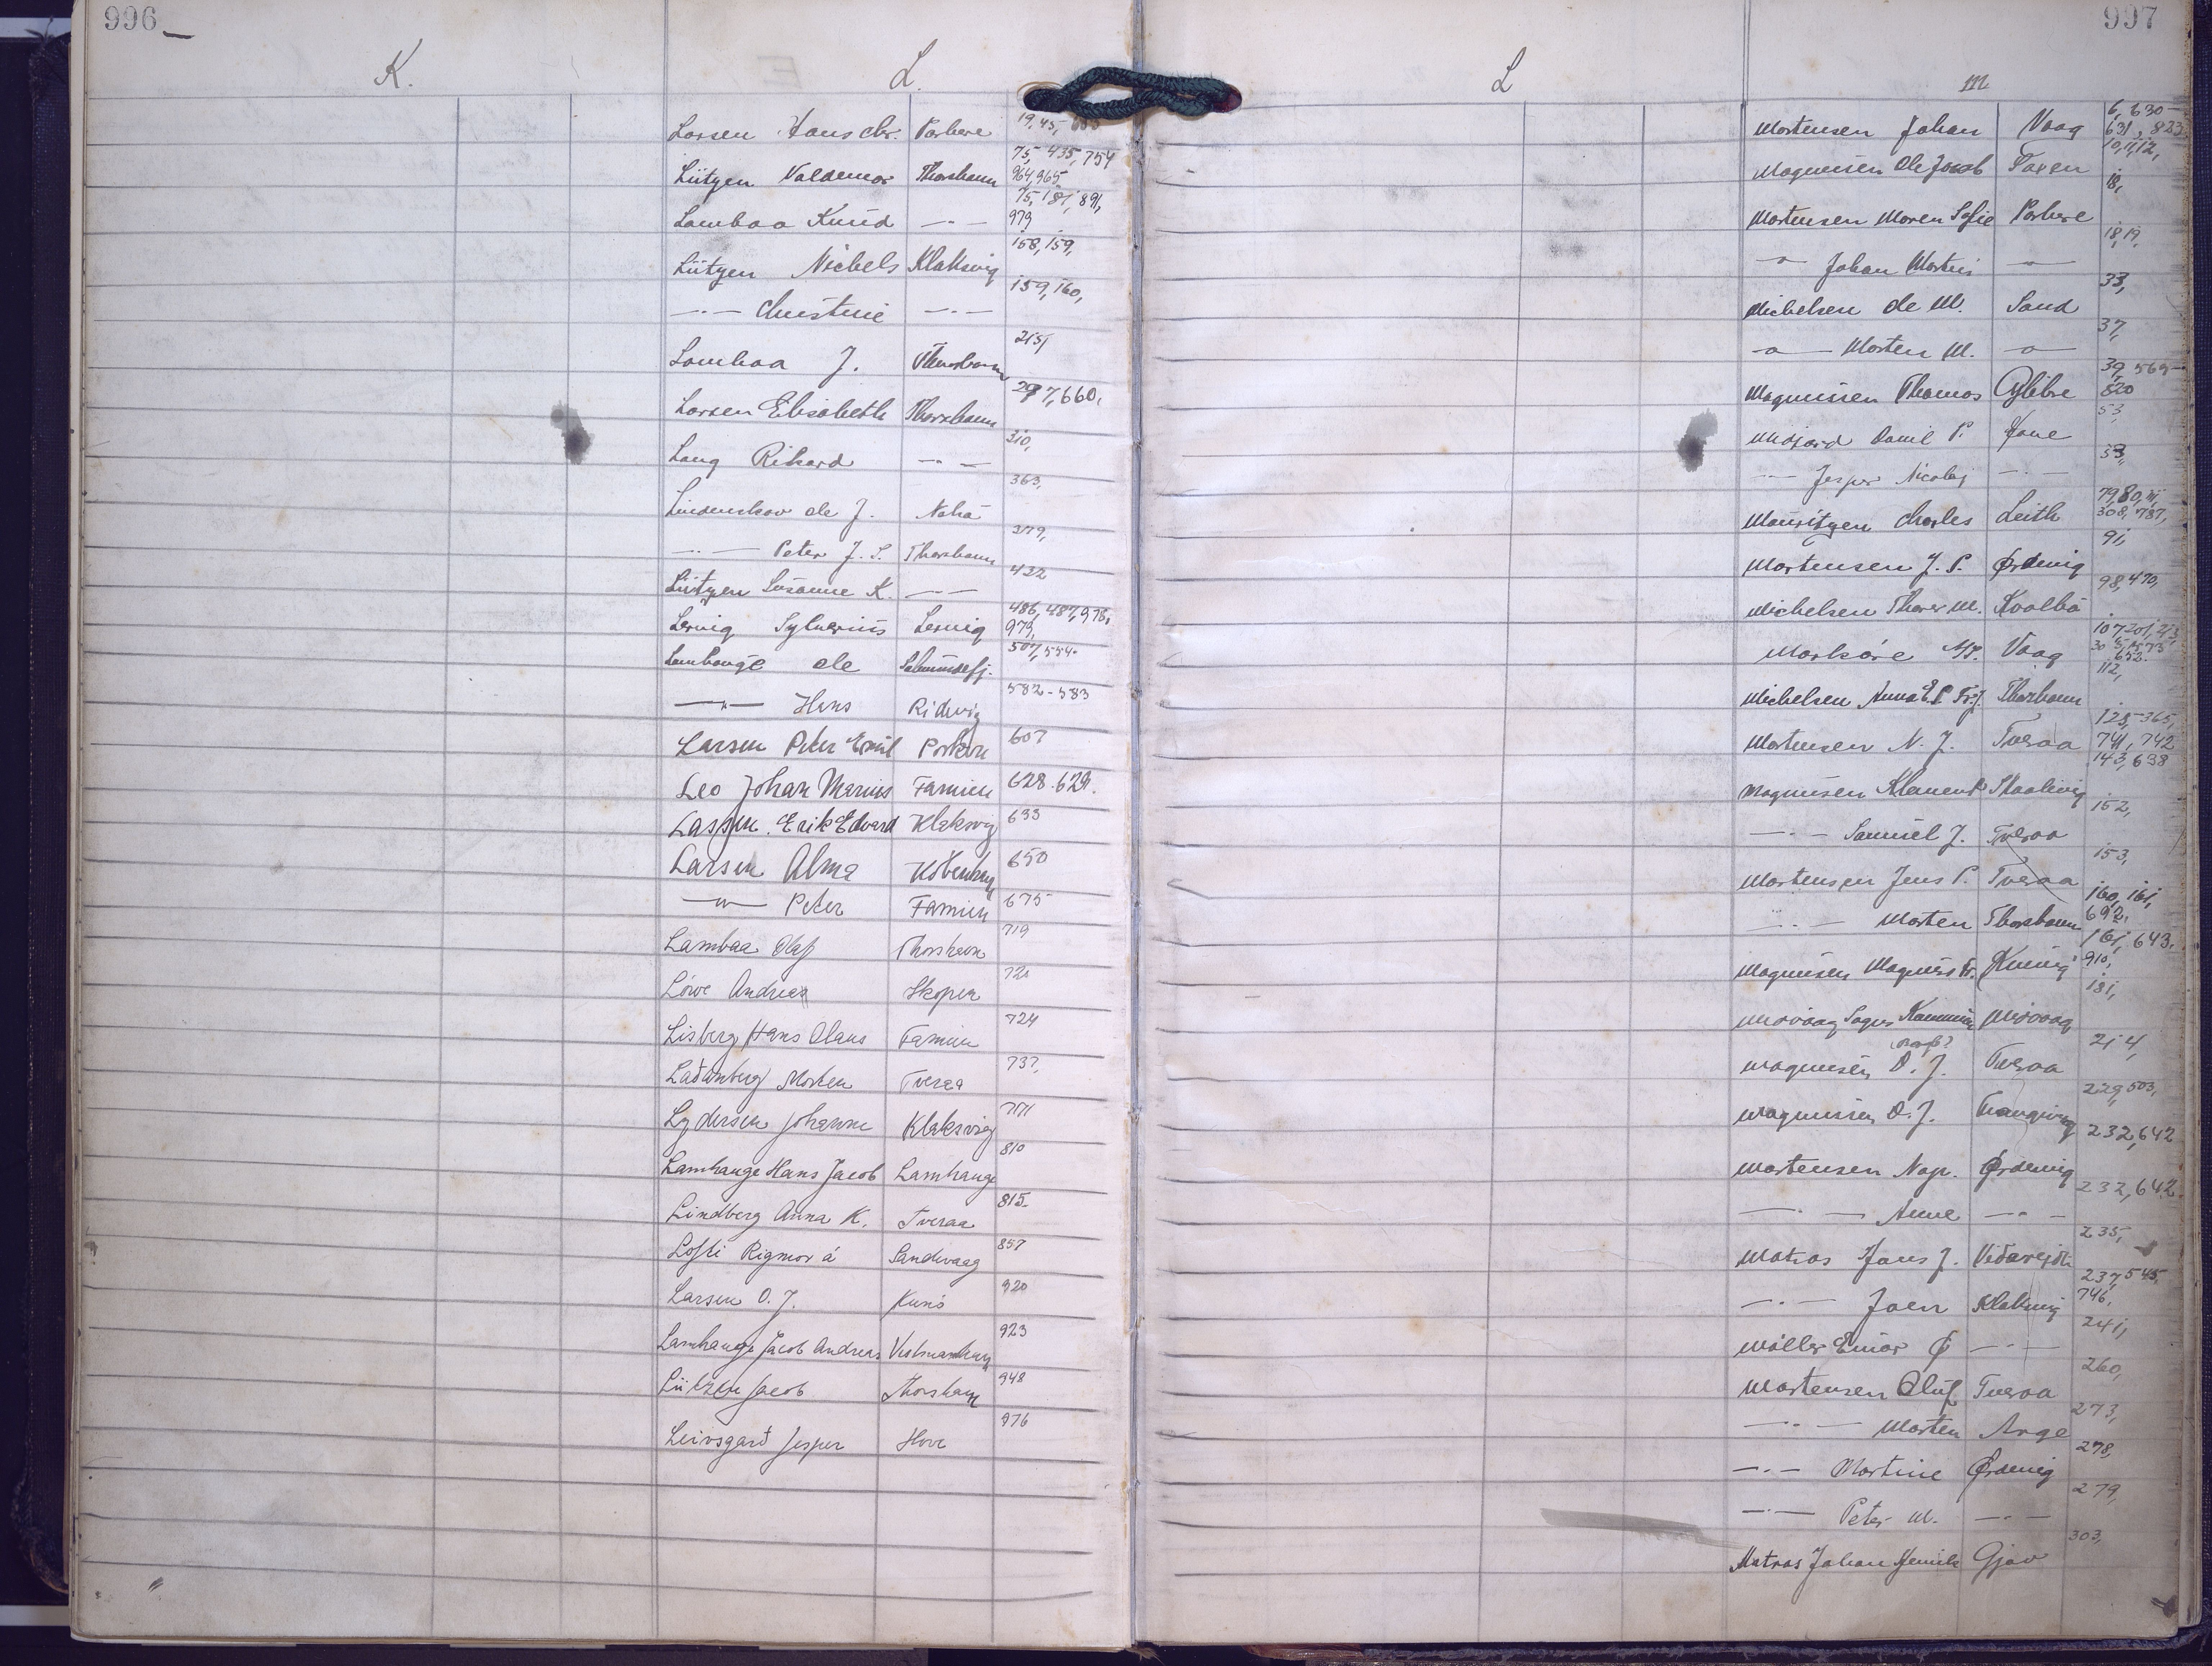 996
K.
L.
Larsen Hans Chr. Porkere 19, 45,
Lützen Valdemar Thorshavn 75, 435, 754 964, 965
Lamhaa Knud —"— 75, 181, 891, 979
Lützen Nickels Klaksvig 158, 159,
—"— Christine —"— 159, 160,
Lamhaa J. Thorshavn 215,
Larsen Elisabeth Thorshavn 297, 660,
Lang Rikard —"— 310,
Lindenskov Ole J. Nolsö 363,
—"— Peter J. S. Thorshavn 379,
Lützen Susanne K. —"— 422
Lervig Sylverius Lervig 486, 487, 978, 979,
Lamhauge Ole Selmundefj. 507, 554.
—"— Hans Ridevig 582-583
Larsen Peter Emil Porkere 607
Leo Johan Marius Famien 628. 629.
Lassen Erik Edvard Klaksvig 633
Larsen Alma København 650
—"— Peter Famien 675
Lambaa Olaf Thorshavn 719
Löwe Andreas Skopen 720
Lisberg Hans Olaus Famien 724
Ladanberg Morten Tveraa 737,
Lydersen Johanne Klaksvig 771
Lamhauge Hans Jacob Lamhauge 810
Lindberg Anna K. Tveraa 815.
Lofti Rigmor á Sandevaag 857
Larsen O. J. Kunö 920
Lamhauge Jacob Andreas Vestmanhavn 923
Lützen Jacob Thorshavn 948
Leivsgard Jesper Hove 976
997
L
M
Mortensen Johan Vaag 6, 630- 631, 823
Magnussen Ole Jacob 10, 11, 12,
Mortensen Maren Sofie Porkere 18,
—"— Johan Martin —"— 18, 19,
Michelsen Ole M. Sand 33,
—"— Morten M. —"— 37,
Magnussen Thomas Glibre 39, 565- 820
Midjord Daniel P. 53,
—"— Jesper Nicolaj —"— 53,
Mouritzen Charles Leith 79, 80, 111, 308, 787,
Mortensen J. P. Ördevig 91,
Michelsen M. Kvalbö 98, 470,
Morköre Vaag 107, 201, 213 652.
Michelsen Anna E. P. Fr. J. Thorshavn 112,
Mortensen N. J. Tveraa 128, 365, 741, 742
Magnussen Klement Skaalevig 143, 638
—"— Samuel J. Tveraa 152,
Mortensen Jens P. Tveraa 153,
—"— Morten Thorshavn 160, 161, 692,
Magnussen Magnus Fr. 161, 643, 910,
Midvaag Sogns Kommune Midvaag 181,
Magnussen D. J. Tveraa 214,
Magnussen O. J. Trangisvaag 229, 503,
Mortensen Nap. Ördevig 232, 642
—"— Anne —"— 232, 642
Matras Hans J. Viderejde 235,
—"— Joen Klaksvig 237, 545 746,
Möller Einar Ø —"— 241,
Mortensen Oluf Tveraa 260,
—"— Morten Arge 273,
—"— Martine Ördevig 278,
—"— Peter M. —"— 279,
Matras Johan Henrik Gjov 303,